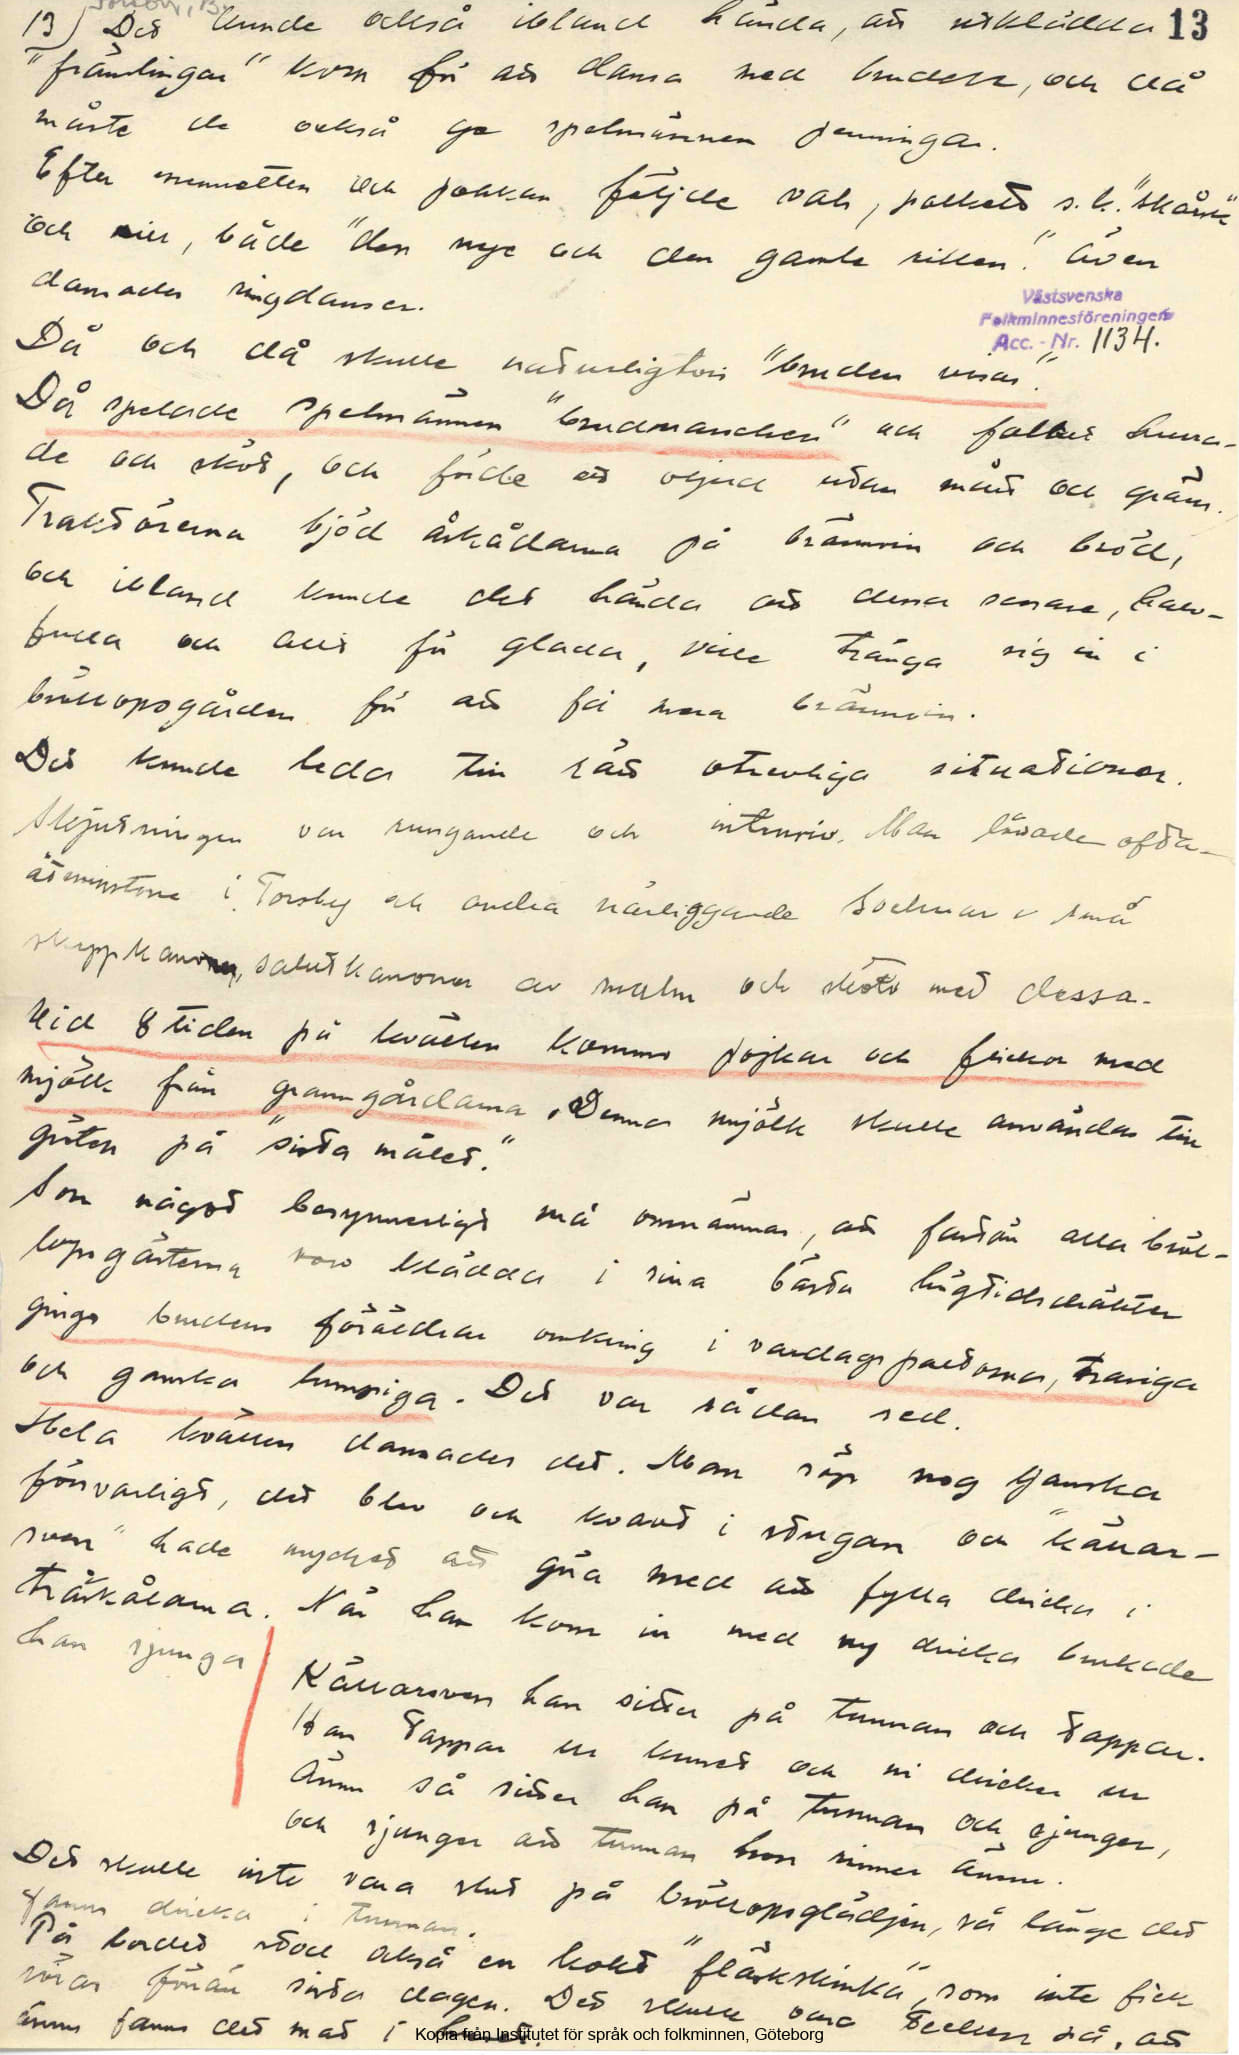 13) Det kunde också ibland hända, att utklädda 13
"främlingar" kom för att dansa med bruden, och då
måste de också ge spelmännen penningar.
Efter menuetten och polkan följde vals, polkett s.k. "skånk"
och sill, både "den nye och den gamle sillen". även
dansades ringdanser.
Västsvenska
Folkminnesföreningen
Acc. - Nr. 1134.
Då och då skulle naturligtvis "bruden visas".
Då spelade spelmännen "brudmarschen" och folket hurra-
de och sköt, och förde ett oljud utan mått och gräns.
Traktörerna bjöd åskådarna på brännvin och bröd,
och ibland kunde det hända att dessa senare, halv-
fulla och allt för glada, ville tränga sig in i
bröllopsgården för att få mera brännvin.
Det kunde leda till rätt otrevliga situationer.
Skjutningen var rungande och intensiv. Man lånade ofta -
åtminstone i Torsby och andra närliggande socknar - små
skeppkanoner, salutkanoner av malm och sköto med dessa.
Vid 8 tiden på kvällen kommo pojkar och flickor med
mjölk från granngårdarna. Denna mjölk skulle användas till
gröten på "sista målet."
Som något besynnerligt må omnämnas, att fastän alla bröl-
lopsgästerna voro klädda i sina bästa högtidsdräkter
gingo brudens föräldrar omkring i vardagspaltorna, trasiga
och ganska lumpiga. Det var sådan sed.
Hela kvällen dansades det. Man söp nog ganska
försvarligt, det blev och kvavt i stugan och "källar-
sven" hade mycket att göra med att fylla dricka i
träskålarna. När han kom in med ny dricka brukade
han sjunga
Källarsven han sitter på tunnan och tappar.
Han tappar ur kruset och ni dricker ur
Ännu så sitter han på tunnan och sjunger,
och sjunger att tunnan hon rinner ännu.
Det skulle inte vara slut på bröllopsglädjen, så länge det
fanns dricka i tunnan.
På bordet stod också en kokt "fläskskinka", som inte fick
röras förrän sista dagen. Det skulle vara tecken på, att
ännu fanns det mat i
Kopia från Institutet för språk och folkminnen, Göteborg